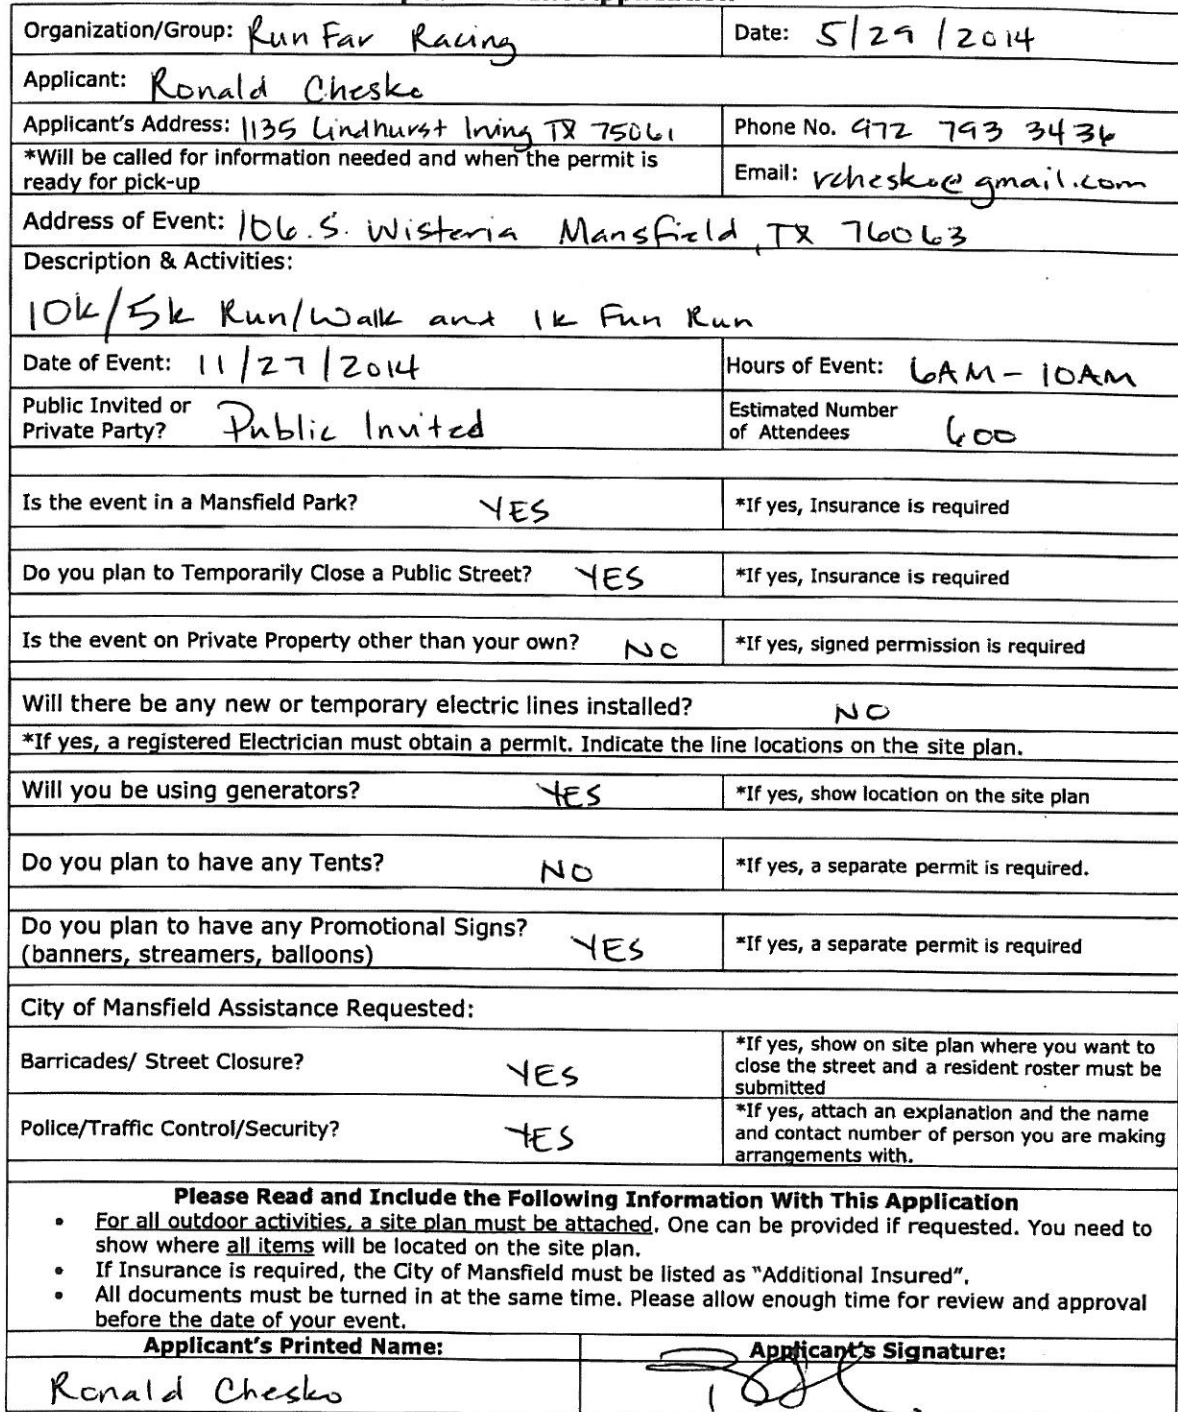 Organization/Group: Run Far Racing Date: 5/29/2014
Applicant: Ronald Chesko
Applicant's Address: 1135 Lindhurst Irving TX 75061 Phone No. 972 793 3436
*Will be called for information needed and when the permit is
ready for pick-up Email: rchesko@gmail.com
Address of Event: 106.S. Wisteria Mansfield, TX 76063
Description & Activities:
10k/5k Run/Walk and 1k Fun Run
Date of Event: 11/27/2014 Hours of Event: 6AM - 10AM
Public Invited or
Private Party? Public Invited Estimated Number
of Attendees 600
Is the event in a Mansfield Park? YES *If yes, Insurance is required
Do you plan to Temporarily Close a Public Street? YES *If yes, Insurance is required
Is the event on Private Property other than your own? NO *If yes, signed permission is required
Will there be any new or temporary electric lines installed? NO
*If yes, a registered Electrician must obtain a permit. Indicate the line locations on the site plan.
Will you be using generators? YES *If yes, show location on the site plan
Do you plan to have any Tents? NO *If yes, a separate permit is required.
Do you plan to have any Promotional Signs?
(banners, streamers, balloons) YES *If yes, a separate permit is required
City of Mansfield Assistance Requested:
Barricades/ Street Closure? YES *If yes, show on site plan where you want to
close the street and a resident roster must be
submitted
Police/Traffic Control/Security? YES *If yes, attach an explanation and the name
and contact number of person you are making
arrangements with.
Please Read and Include the Following Information With This Application
• For all outdoor activities, a site plan must be attached. One can be provided if requested. You need to
show where all items will be located on the site plan.
• If Insurance is required, the City of Mansfield must be listed as "Additional Insured".
• All documents must be turned in at the same time. Please allow enough time for review and approval
before the date of your event.
Applicant's Printed Name: Applicant's Signature:
Ronald Chesko